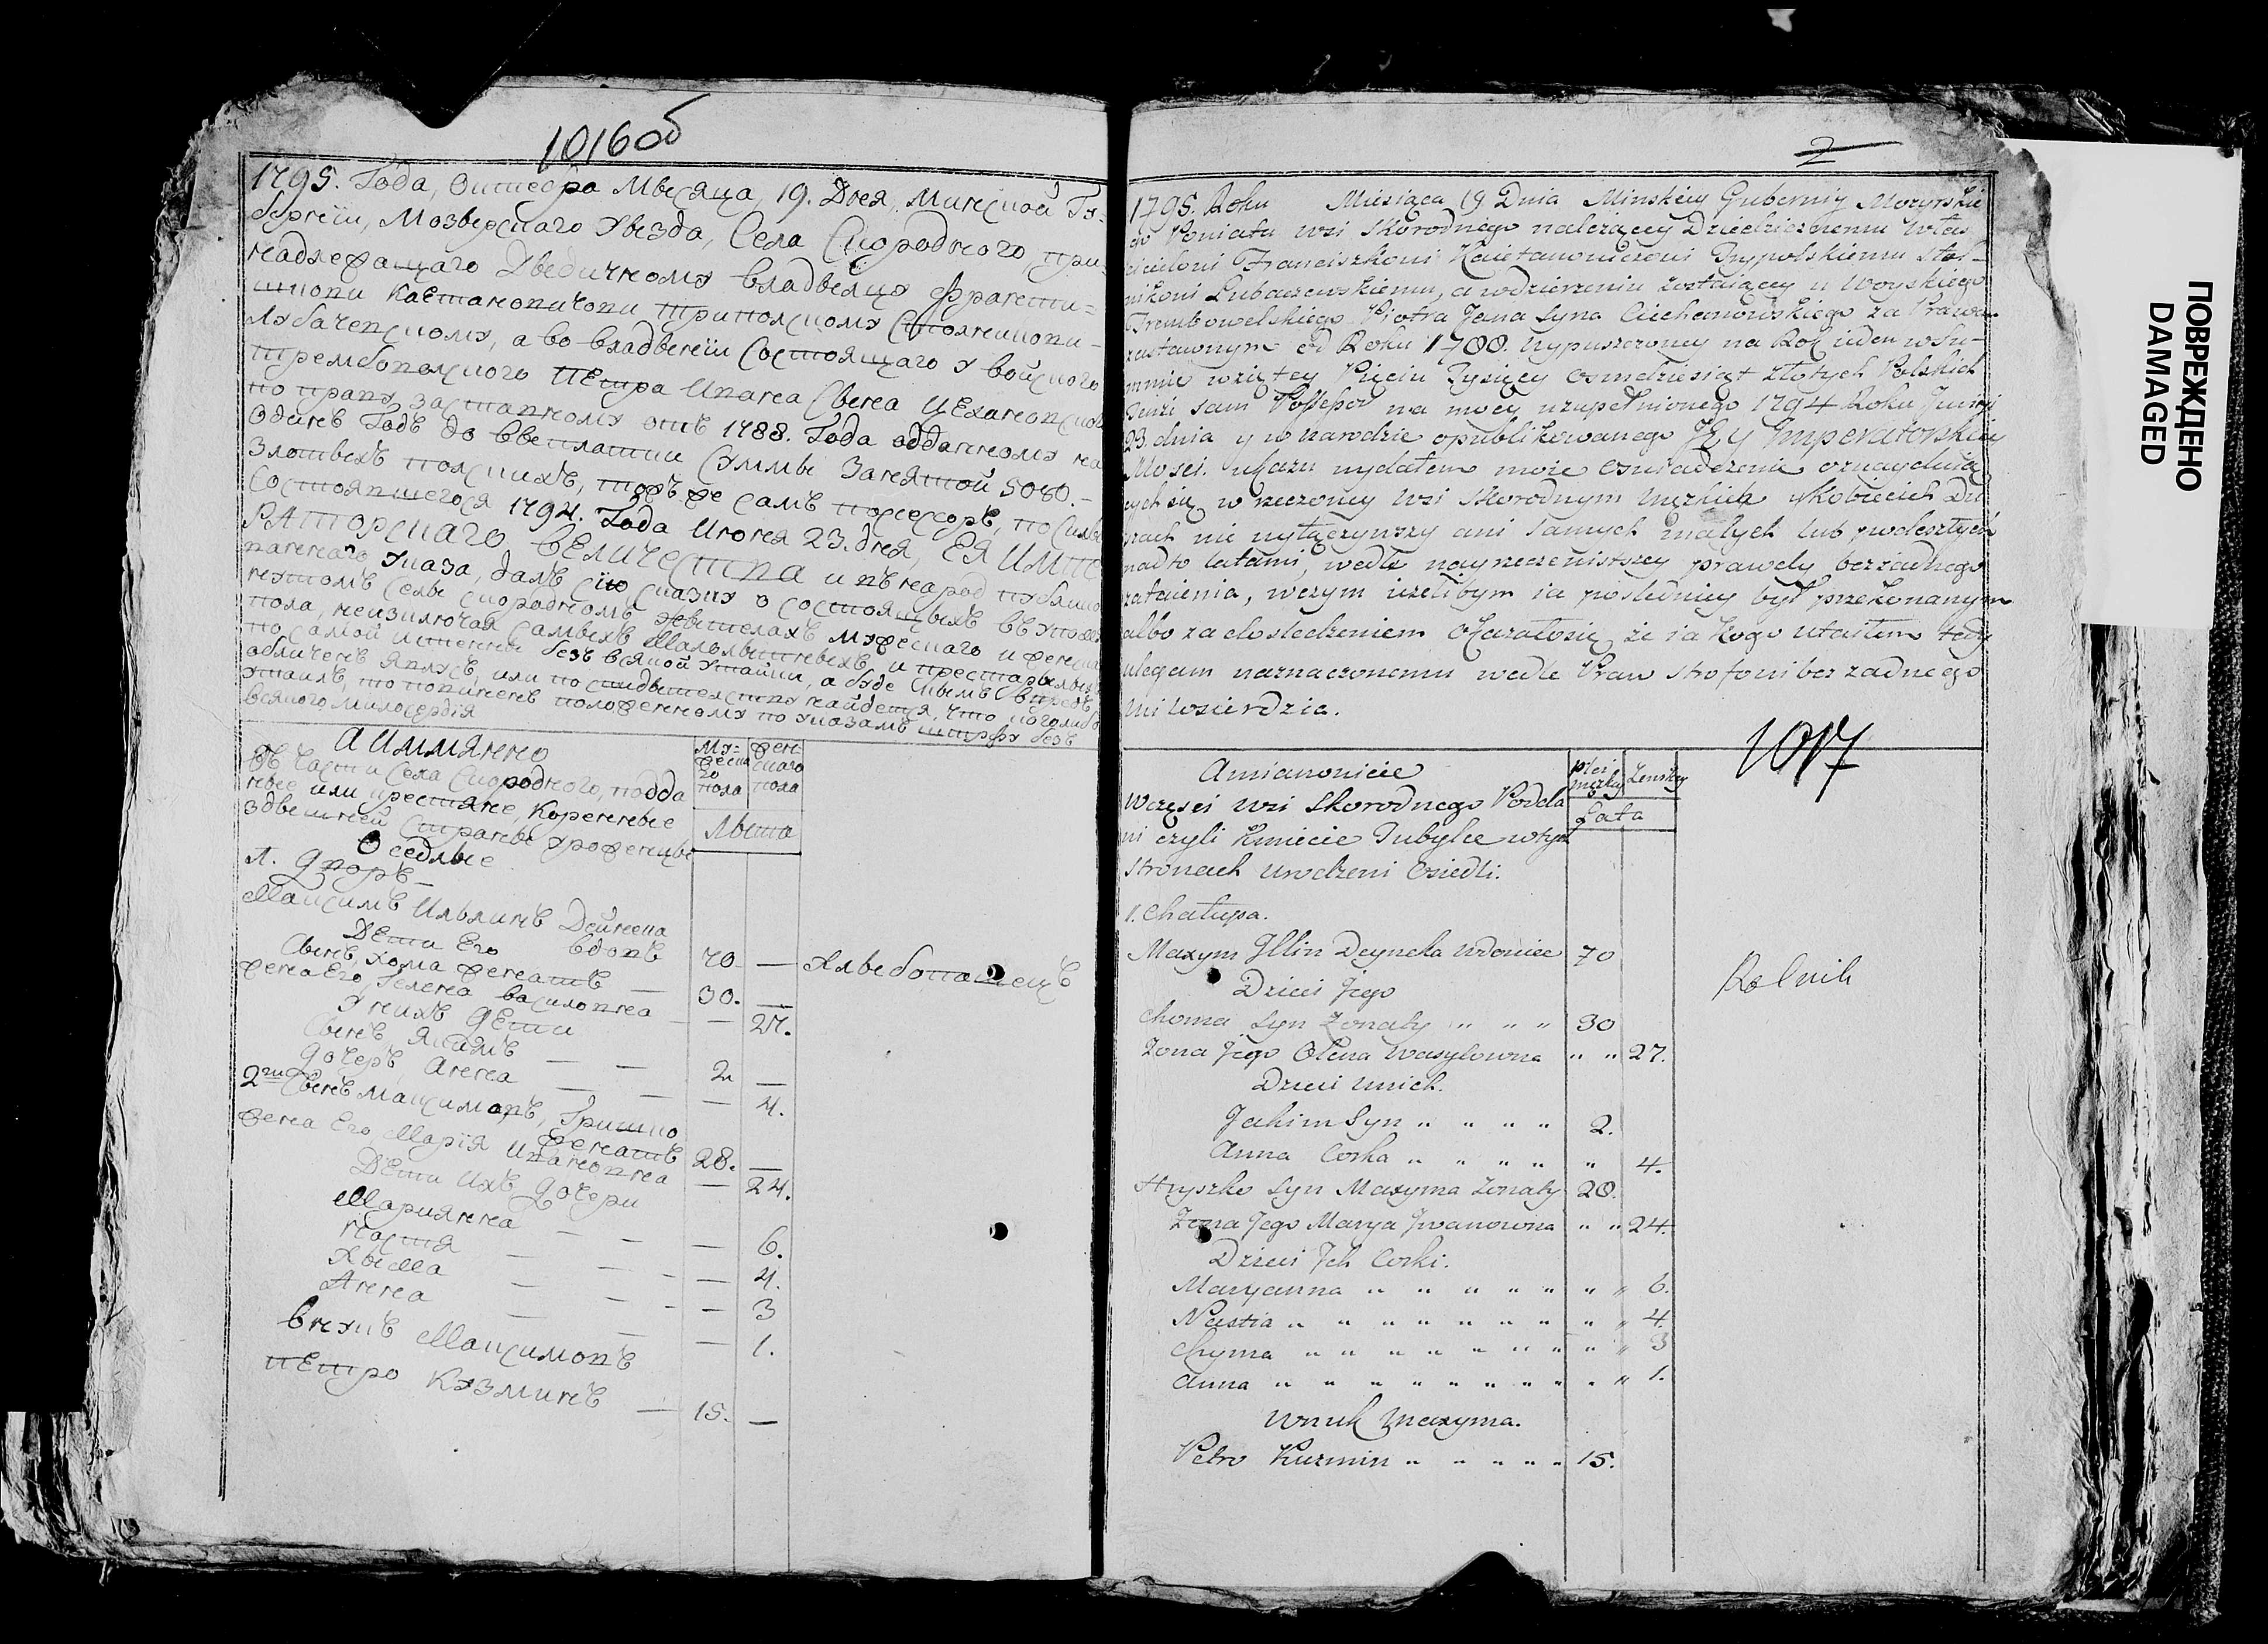 1016об
1795. Года, Октебра Мѣсяца, 19. Дня, Минской Гу-
бернїи, Мозырскаго Уѣзда, Села Скороднаго, при-
надлежащаго Дѣдичному владѣлцу Францти-
шкови Каетановичови Трипольскому Столникови
Любачевскому, а во владѣнїи Состоящаго у войского
Трембовелского Петра Ивана Сына Цеханов
по праву заставному отъ 1788. Года отданному на
Одинъ Годъ до выплатии Суммы Занятой 5080.-
Злотыхъ полскихъ, тожъ же самъ посесоръ, по Силѣ
Состоявшегося 1794. Года Июня 23. дня, ЕЯ ИМПЕ
РАТОРСКАГО ВЕЛИЧЕСТВА и въ народ публико
ваннаго Указа, далъ сїю сказку о состоящыхъ въ упомя
нутомъ Селѣ Скородномъ жытелахъ мужескаго и женска
пола, неизключая самыхъ Малолѣтныхъ и престарѣлыхъ
по самой истенны безъ всякой утайки, а буде кымъ впредь
обличенъ явлюсь, или по свидѣтелству найдется, что кого либо
утаилъ, то повиненъ положенному по указамъ штрафу безъ
всякого милосердїя
А Имманно
Въ Части Села Скородного, подда
ные или крестяне, Коренные
здѣшней Страны уроженцы
Оседлые
Му-
жеска
го
пола
жен-
скаго
пола
Лѣта
1. Дворъ
Максимъ Ильинъ Дейнека
вдовъ 70 — Хлѣбопашецъ
Дети Его
Сынъ, Хома женатъ — 30. —
жена Его, Гелена Василовна — — 27.
У нихъ Дети
Сынъ Якимъ — — 2 —
Дочеръ, Анна — — — 4.
2ги Сынъ Максимовъ, Гришко
женатъ 28. —
жена Его, Марїя Ивановна — 24.
Дети Ихъ Дочери
Мариянна — — — 6.
Настя — — — 4.
Хыма — — — 3
Анна — — — 1.
Внукъ Максимовъ
Петро Кузминъ — 15. —
2
1795. Roku Miesiąca 19 Dnia Minskiey Gubernij Mozyrskie
go Powiatu wsi Skorodnego należącey Dziedzicznemu Włas
cicielowi Franciszkowi Kaietanowiczowi Trypolskiemu Stol-
nikowi Lubaczewskiemu, a wdzierżeniu zostaiącey u Woyskiego
Trembowelskiego Piotra Jana Syna Ciechanowskiego za Prawem
zastawnym od Roku 1788. wypuszczoney na Rok ieden wSu-
mmie wziętey Pięciu Tysięcy osmdziesiąt złotych Polskich
Tenże sam Possessor na mocy uzupełnionego 1794 Roku Junij
23. dnia y w narodzie opublikowanego JEY Imperatorskiey
Mosci. ukazu wydałem moie oswiadczenie oznayduią
cych się w rzeczoney wsi Skorodnym męzkich y Kobiecich Du
szach nie wyłączywszy ani samych małych lub podeszłych
nadto latami, wedle nayrzeczewistszey prawdy bez żadnego
zataienia, wczym ieżelibym ia posledniey był przekonanym
albo za dosledzeniem okazałosię że ia kogo utaiłem tedy
ulegam naznaczonemu wedle Praw Strofowi bez żadnego
miłosierdzia.
1017
Amianowicie
Wczęsci wsi Skorodnego Podda
ni czyli Kmiecie Tubylce wtych
stronach urodzeni Osiedli.
płci
męzkiey
Zenskiey
Lata
1. Chałupa.
Maxym Jllin Deyneka wdowiec 70 Rolnik
Dzieci Jego
Choma Syn Zonaty " " " 30
Zona Jego Olena Wasylowna " " 27.
Dzieci unich.
Jakim Syn " " " " 2.
Anna Corka " " " " " 4.
Hryszko Syn Maxyma Zonaty 28.
Zona Jego Marya Jwanowna " " 24.
Dzieci Jch Corki.
Maryanna " " " " " " " 6.
Nastia " " " " " " " " " 4.
Chyma " " " " " " " " " 3
Anna " " " " " " " " " " 1.
Wnuk Maxyma.
Petro Kuzmin " " " " " 15.
ПОВРЕЖДЕНО
DAMAGED